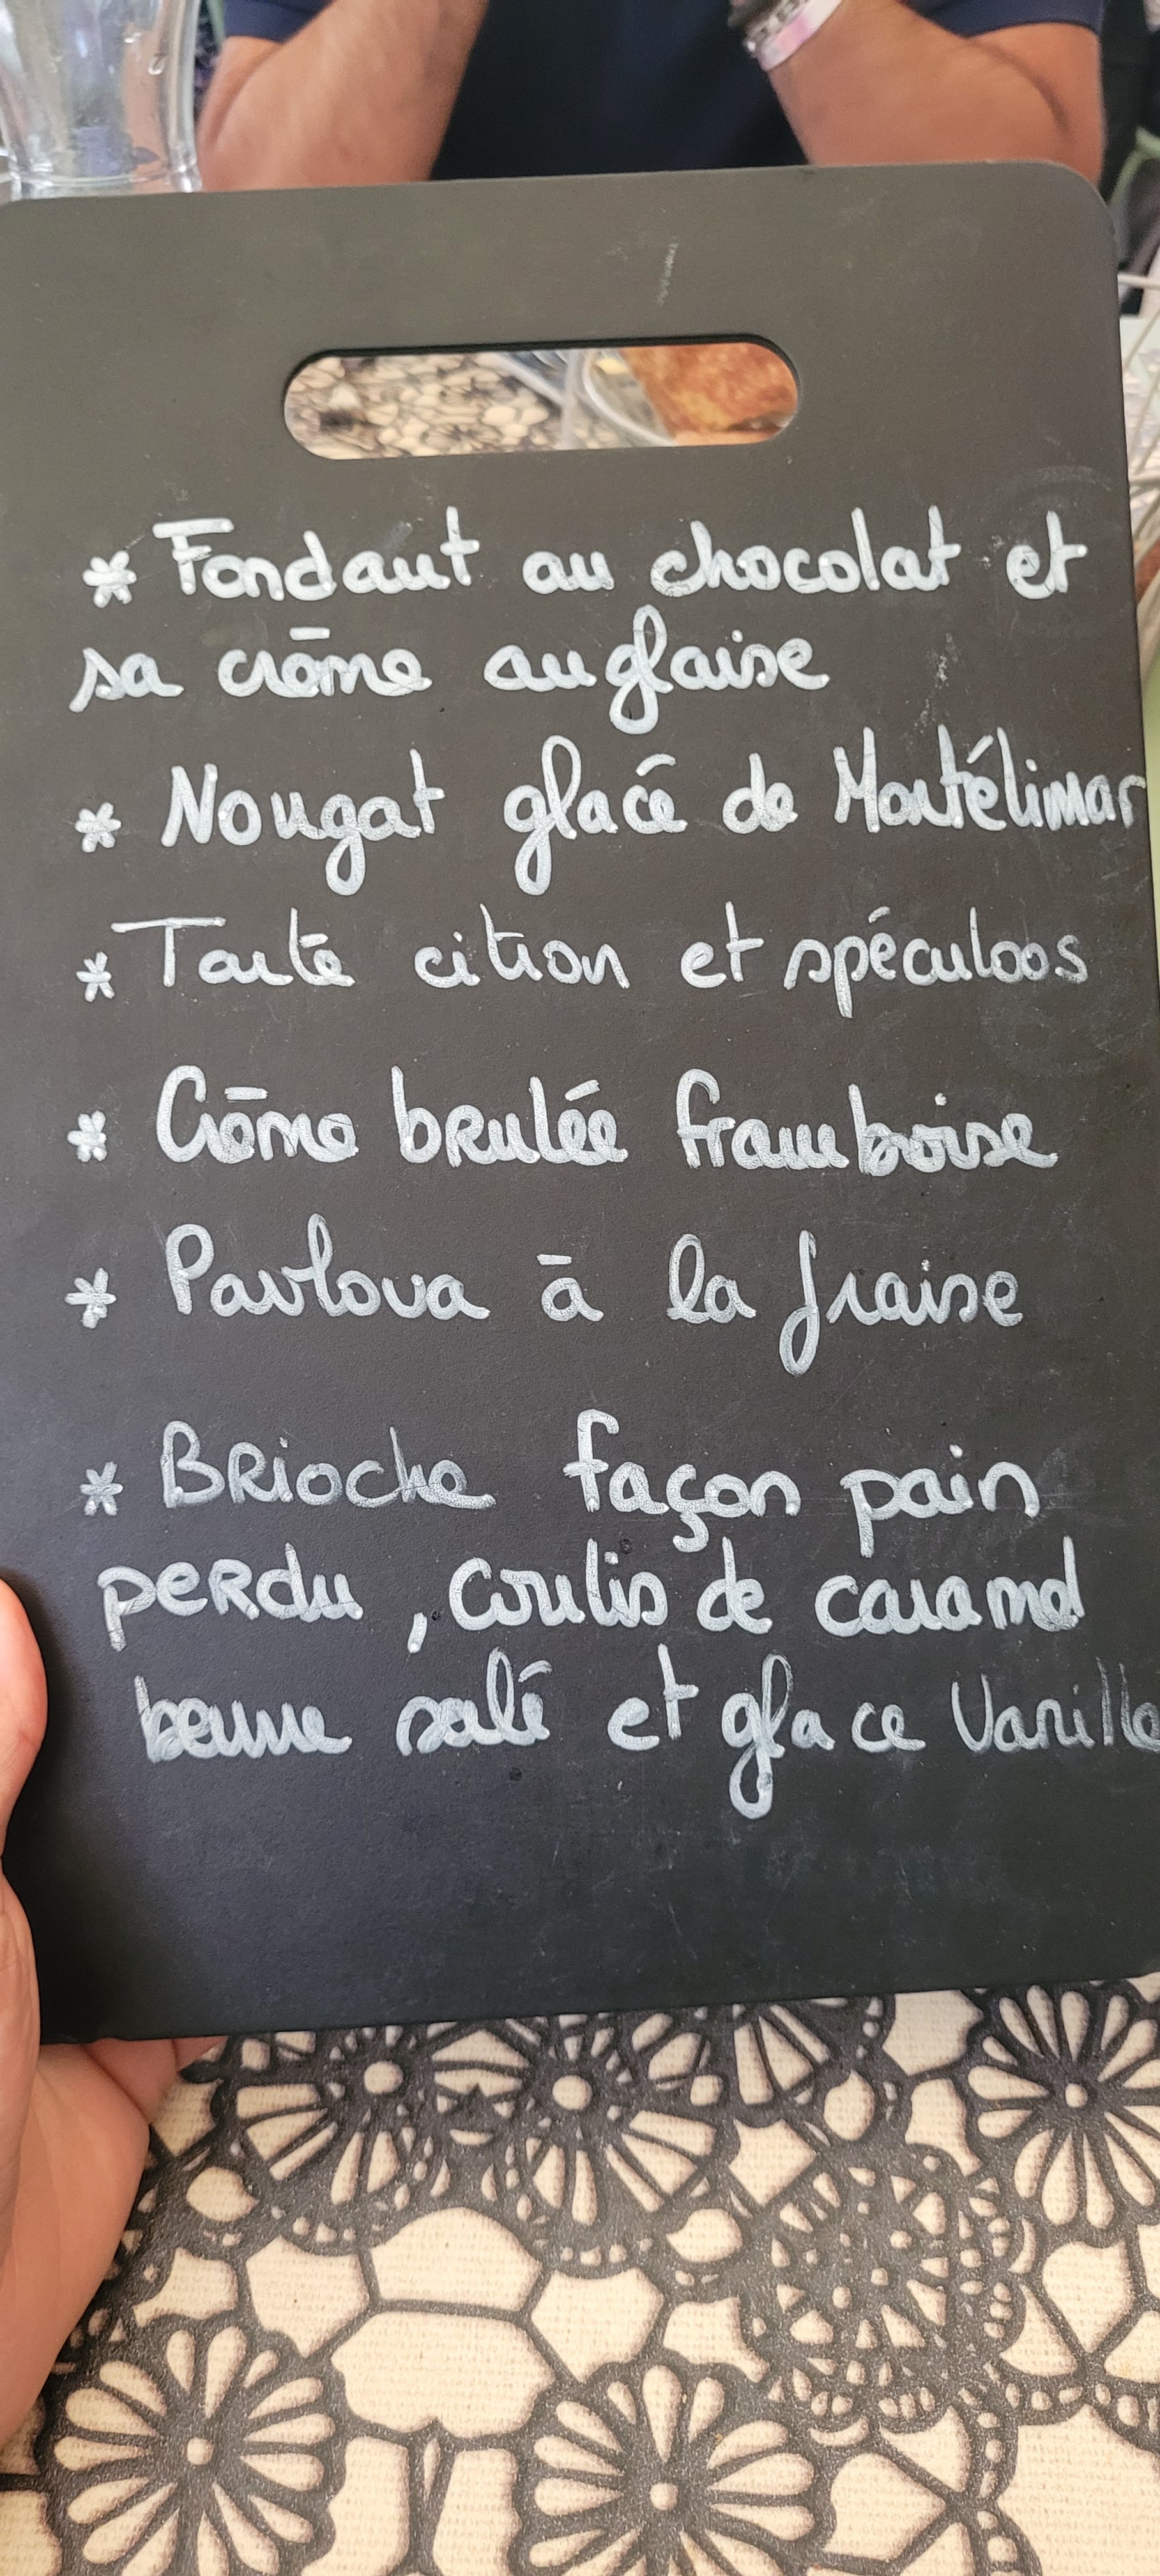 * Fondant au chocolat et
sa crème anglaise
* Nougat glacé de Montélimar
* Tarte citron et spéculoos
* Crème brulée framboise
* Pavlova à la fraise
* Brioche façon pain
perdu, coulis de caramel
beurre salé et glace Vanille